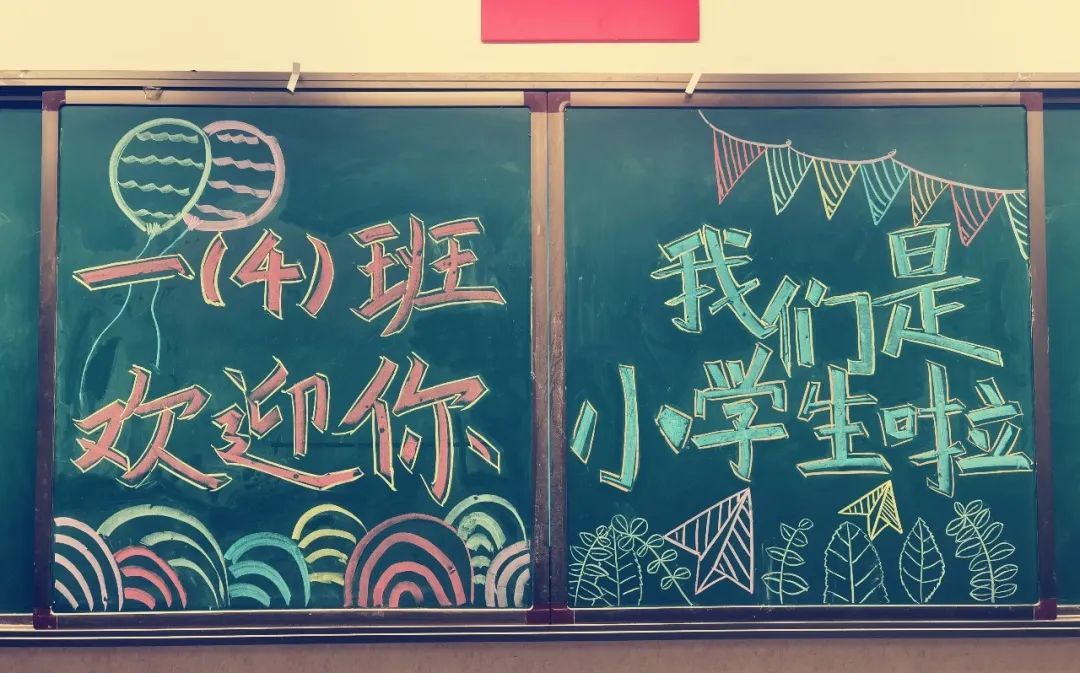 一(4)班
欢迎你
我们是
小学生啦